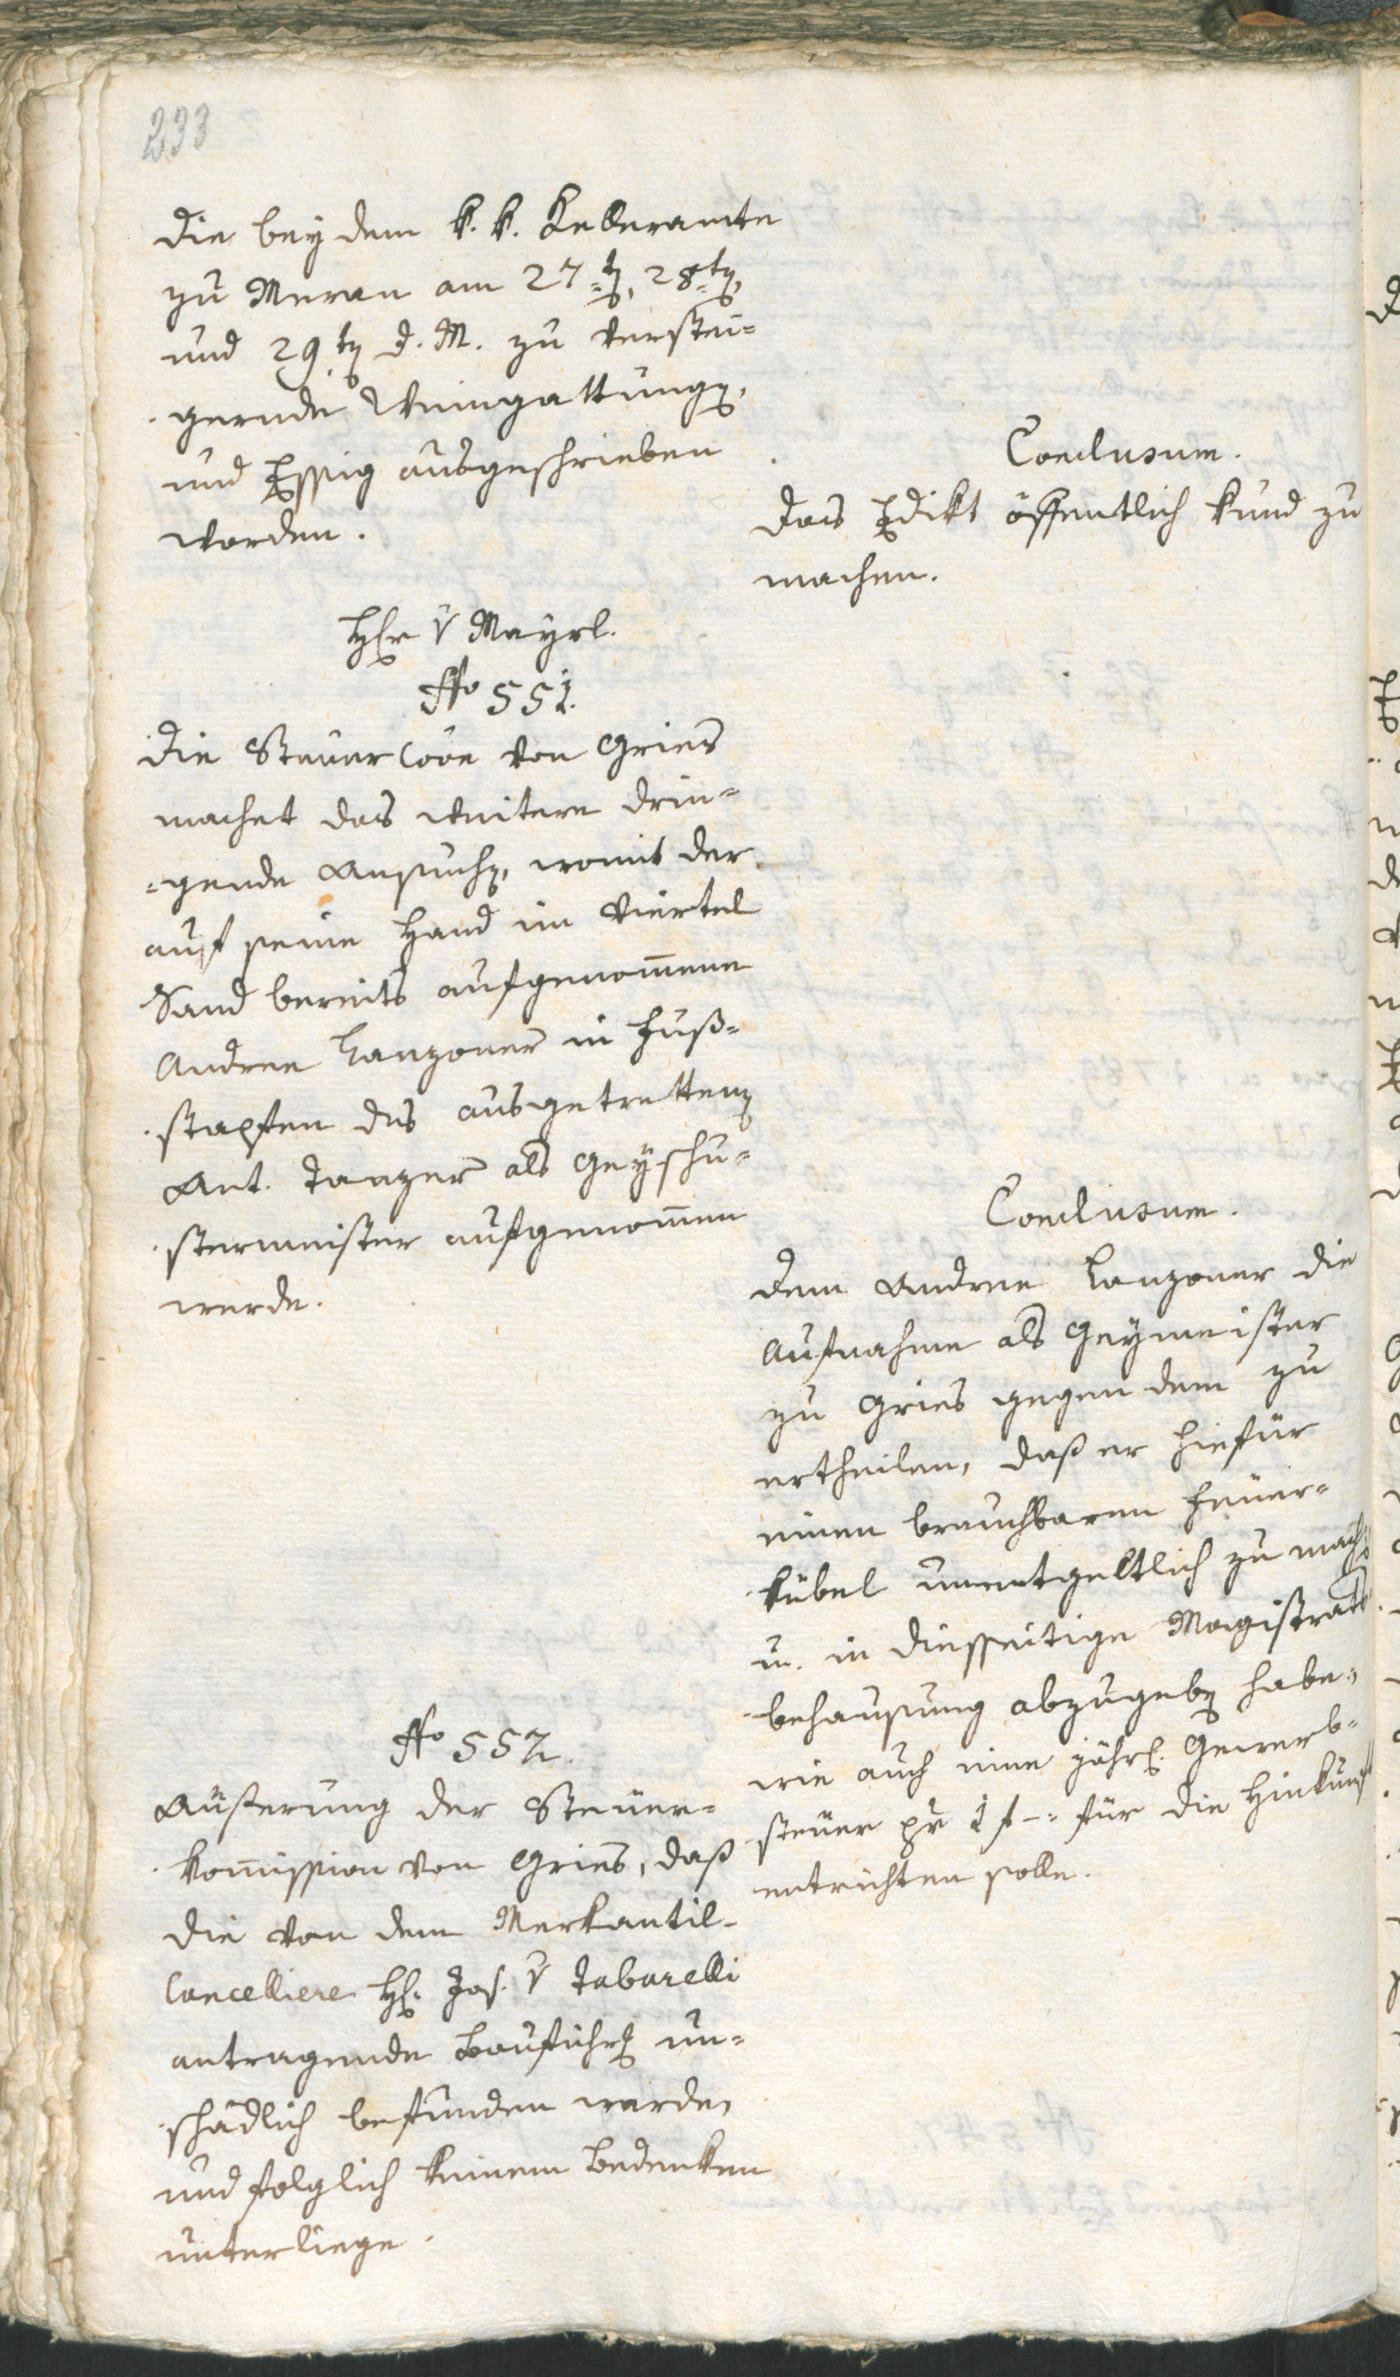 233
die bey dem k. k. Kelleramte
zu Meran am 27ten, 28ten,
und 29ten d. M. zu verstei-
gernde Weingattungen,
und Essig ausgeschrieben
worden.
Conclusum.
das Edikt öffentlich kund zu
machen.
Herr v Mayrl.
No 551.
die Steuer Coon von Gries
machet das weitere drin-
gende Ansuchen, womit der
auf seine Hand im Viertel
Sand bereits aufgenommene
Andree Lanzoner in Fuß-
stapfen des ausgetrettenen
Ant. Tanzer als Geyschu-
stermeister aufgenommen
werde.
Conclusum.
dem Andree Lanzoner die
Aufnahme als Geymeister
zu Gries gegen dem zu
ertheilen, daß er hiefür
einen brauchbaren Feuer-
kübel unentgeltlich zu machen
u. in diesseitige Magistrats
behausung abzugeben habe,
wie auch eine jährl. Gewerb-
steuer pr 1 f -: für die Hinkunft
entrichten solle.
No 552.
Äußerung der Steuer-
kommission von Gries, daß
die von dem Merkantil-
Cancelliere H. Jos. v Tabarelli
antragende Bauführung un-
schädlich befunden werde,
und folglich keinem Bedenken
unterliege.